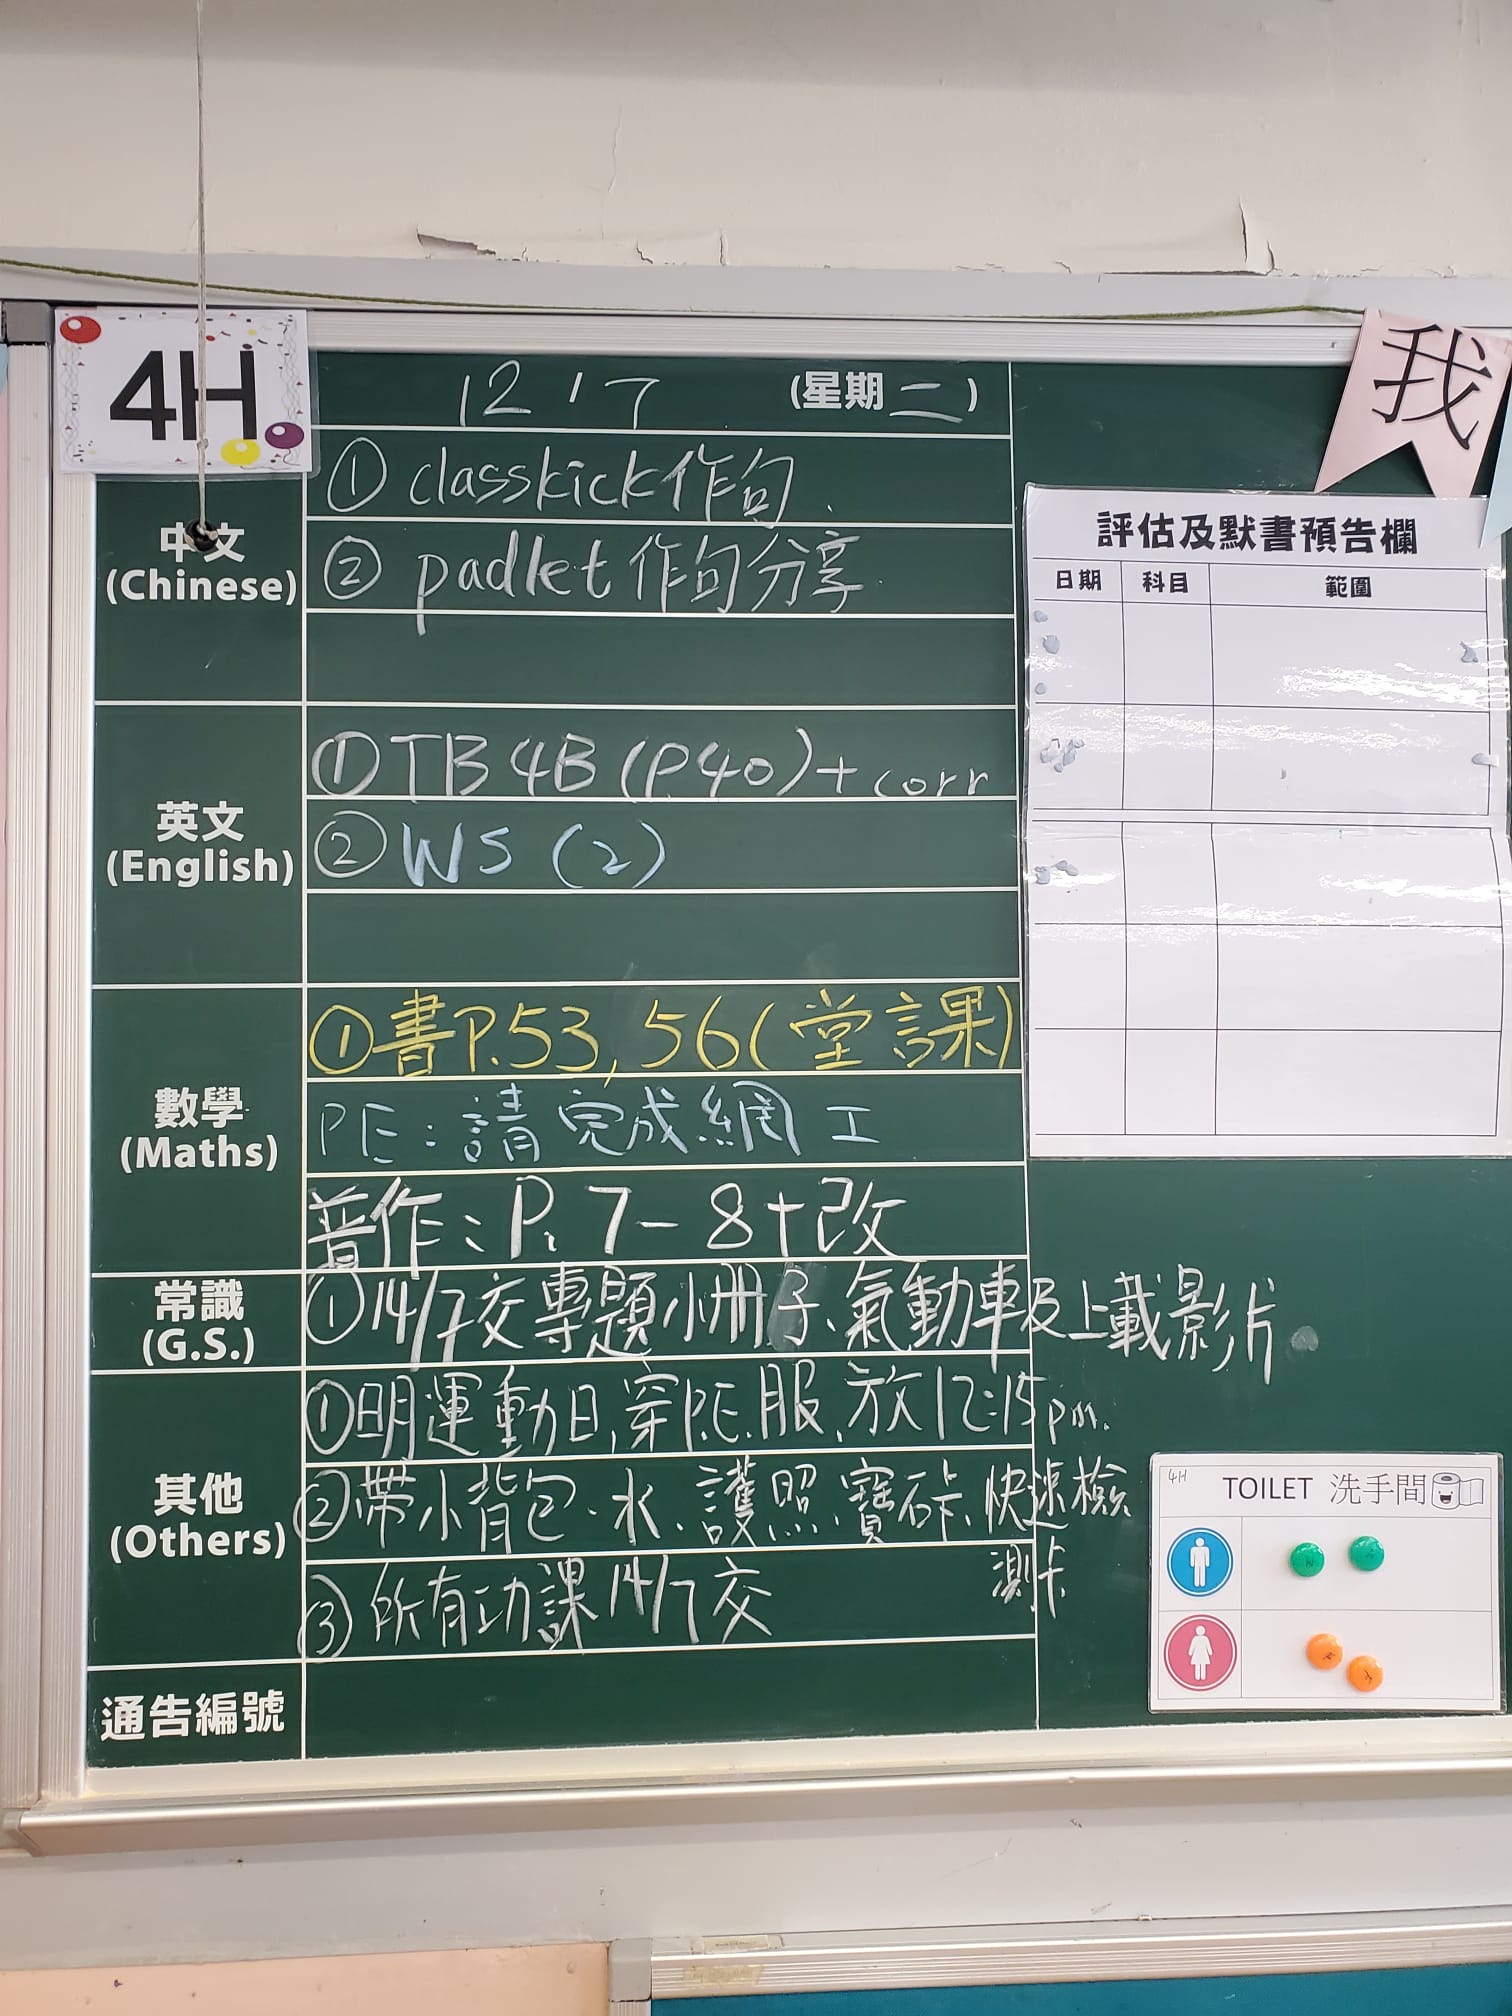 4H
12 / 7 (星期二)
我
中文
(Chinese)
① classkick作句.
② padlet作句分享.
評估及默書預告欄
日期 科目 範圍
英文
(English)
① TB 4B (P.40) + corr
② WS (2)
數學
(Maths)
① 書P.53, 56(堂課)
PE:請完成網工
普作:P. 7-8+改
常識
(G.S.)
① 14/7交專題小冊子、氣動車及上載影片。
其他
(Others)
① 明運動日,穿P.E.服,放12:15pm.
② 帶小背包、水、護照、寶礦、快速檢
測卡
③ 所有功課14/7交
通告編號
4H
TOILET 洗手間